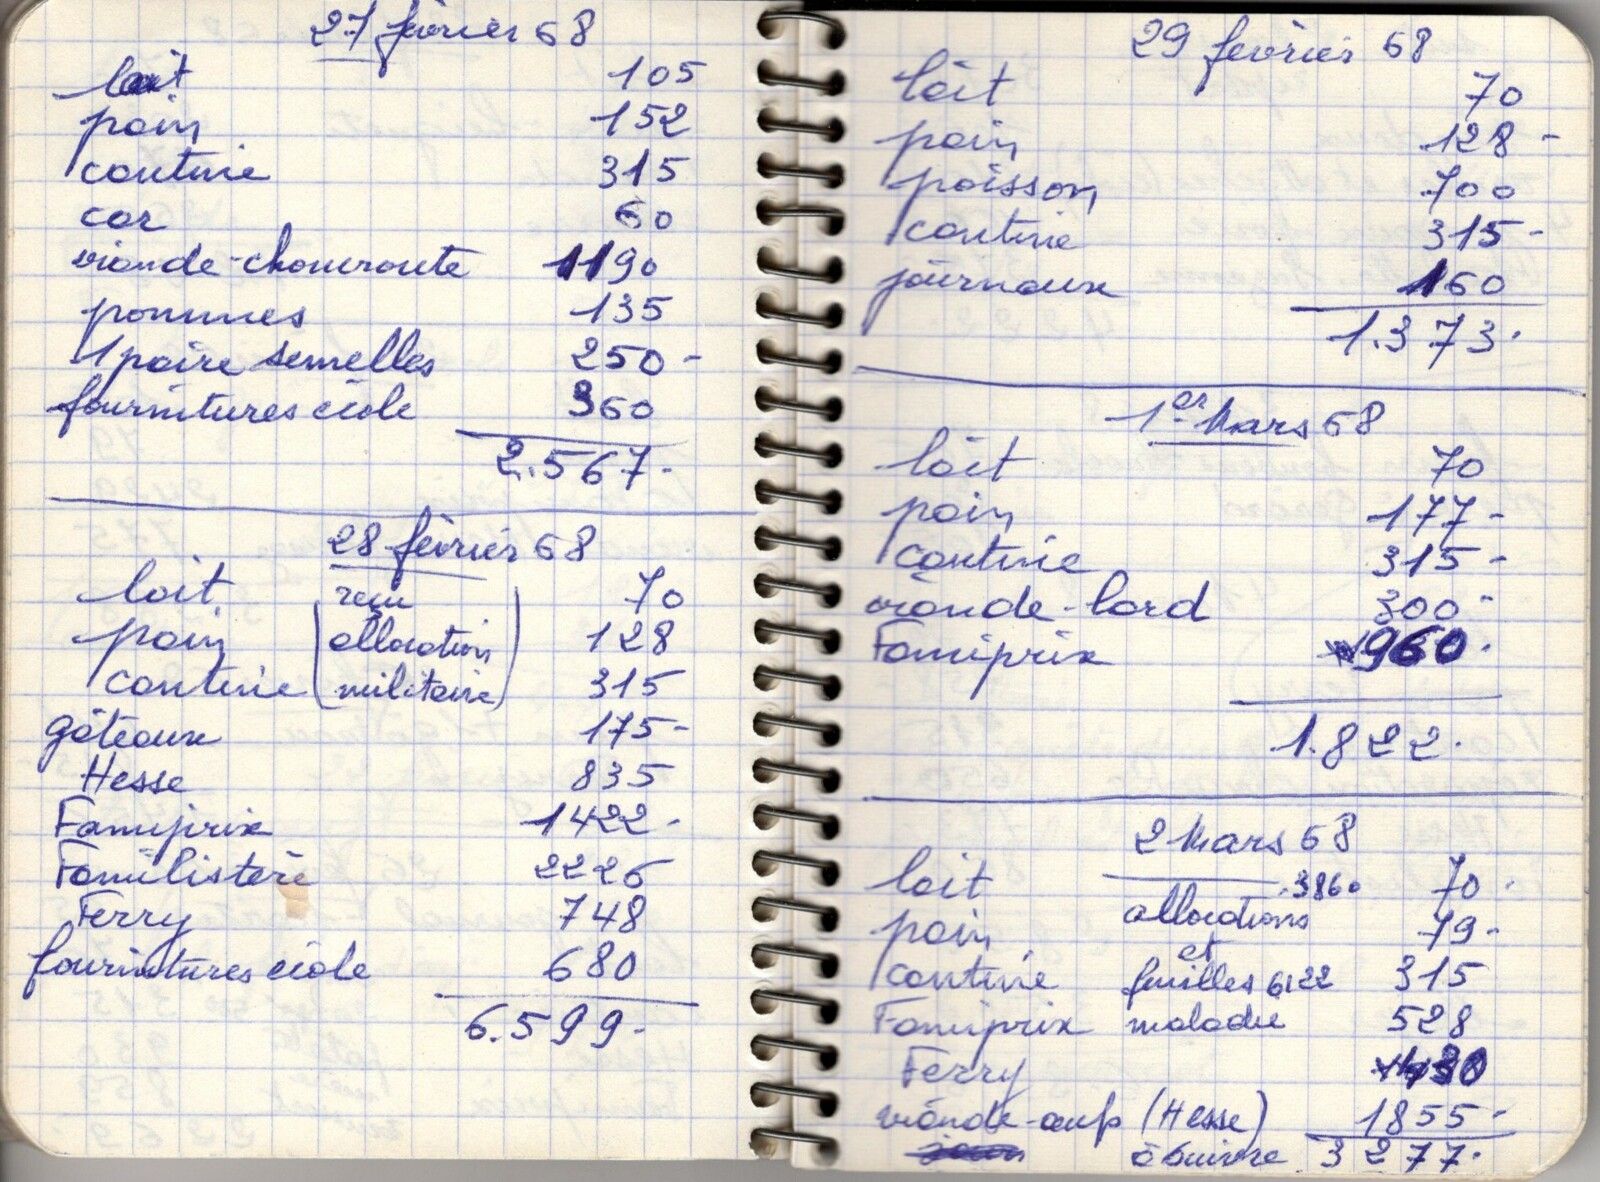 27 février 68
lait 105
pain 152
cantine 315
car 60
viande-choucroute 1190
pommes 135
1 paire semelles 250-
fournitures école 360
2.567.
28 février 68
lait reçu 70
pain (allocation 128
cantine militaire) 315
gâteaux 175-
Hesse 835
Famiprix 1422.
Familistère 2226
Ferry 748
fournitures école 680
6.599.
29 février 68
lait 70
pain 128-
poisson 700
cantine 315-
journaux 160
1.373.
1er Mars 68
lait 70
pain 177-
cantine 315-
viande-lard 300-
Famiprix 960.
1.822.
2 Mars 68
lait 3860 70.
pain allocations 79.
et
cantine feuilles 6122 315
Famiprix maladie 528
Ferry 430
viande-œufs (Hesse) 1855-
à suivre 3277.